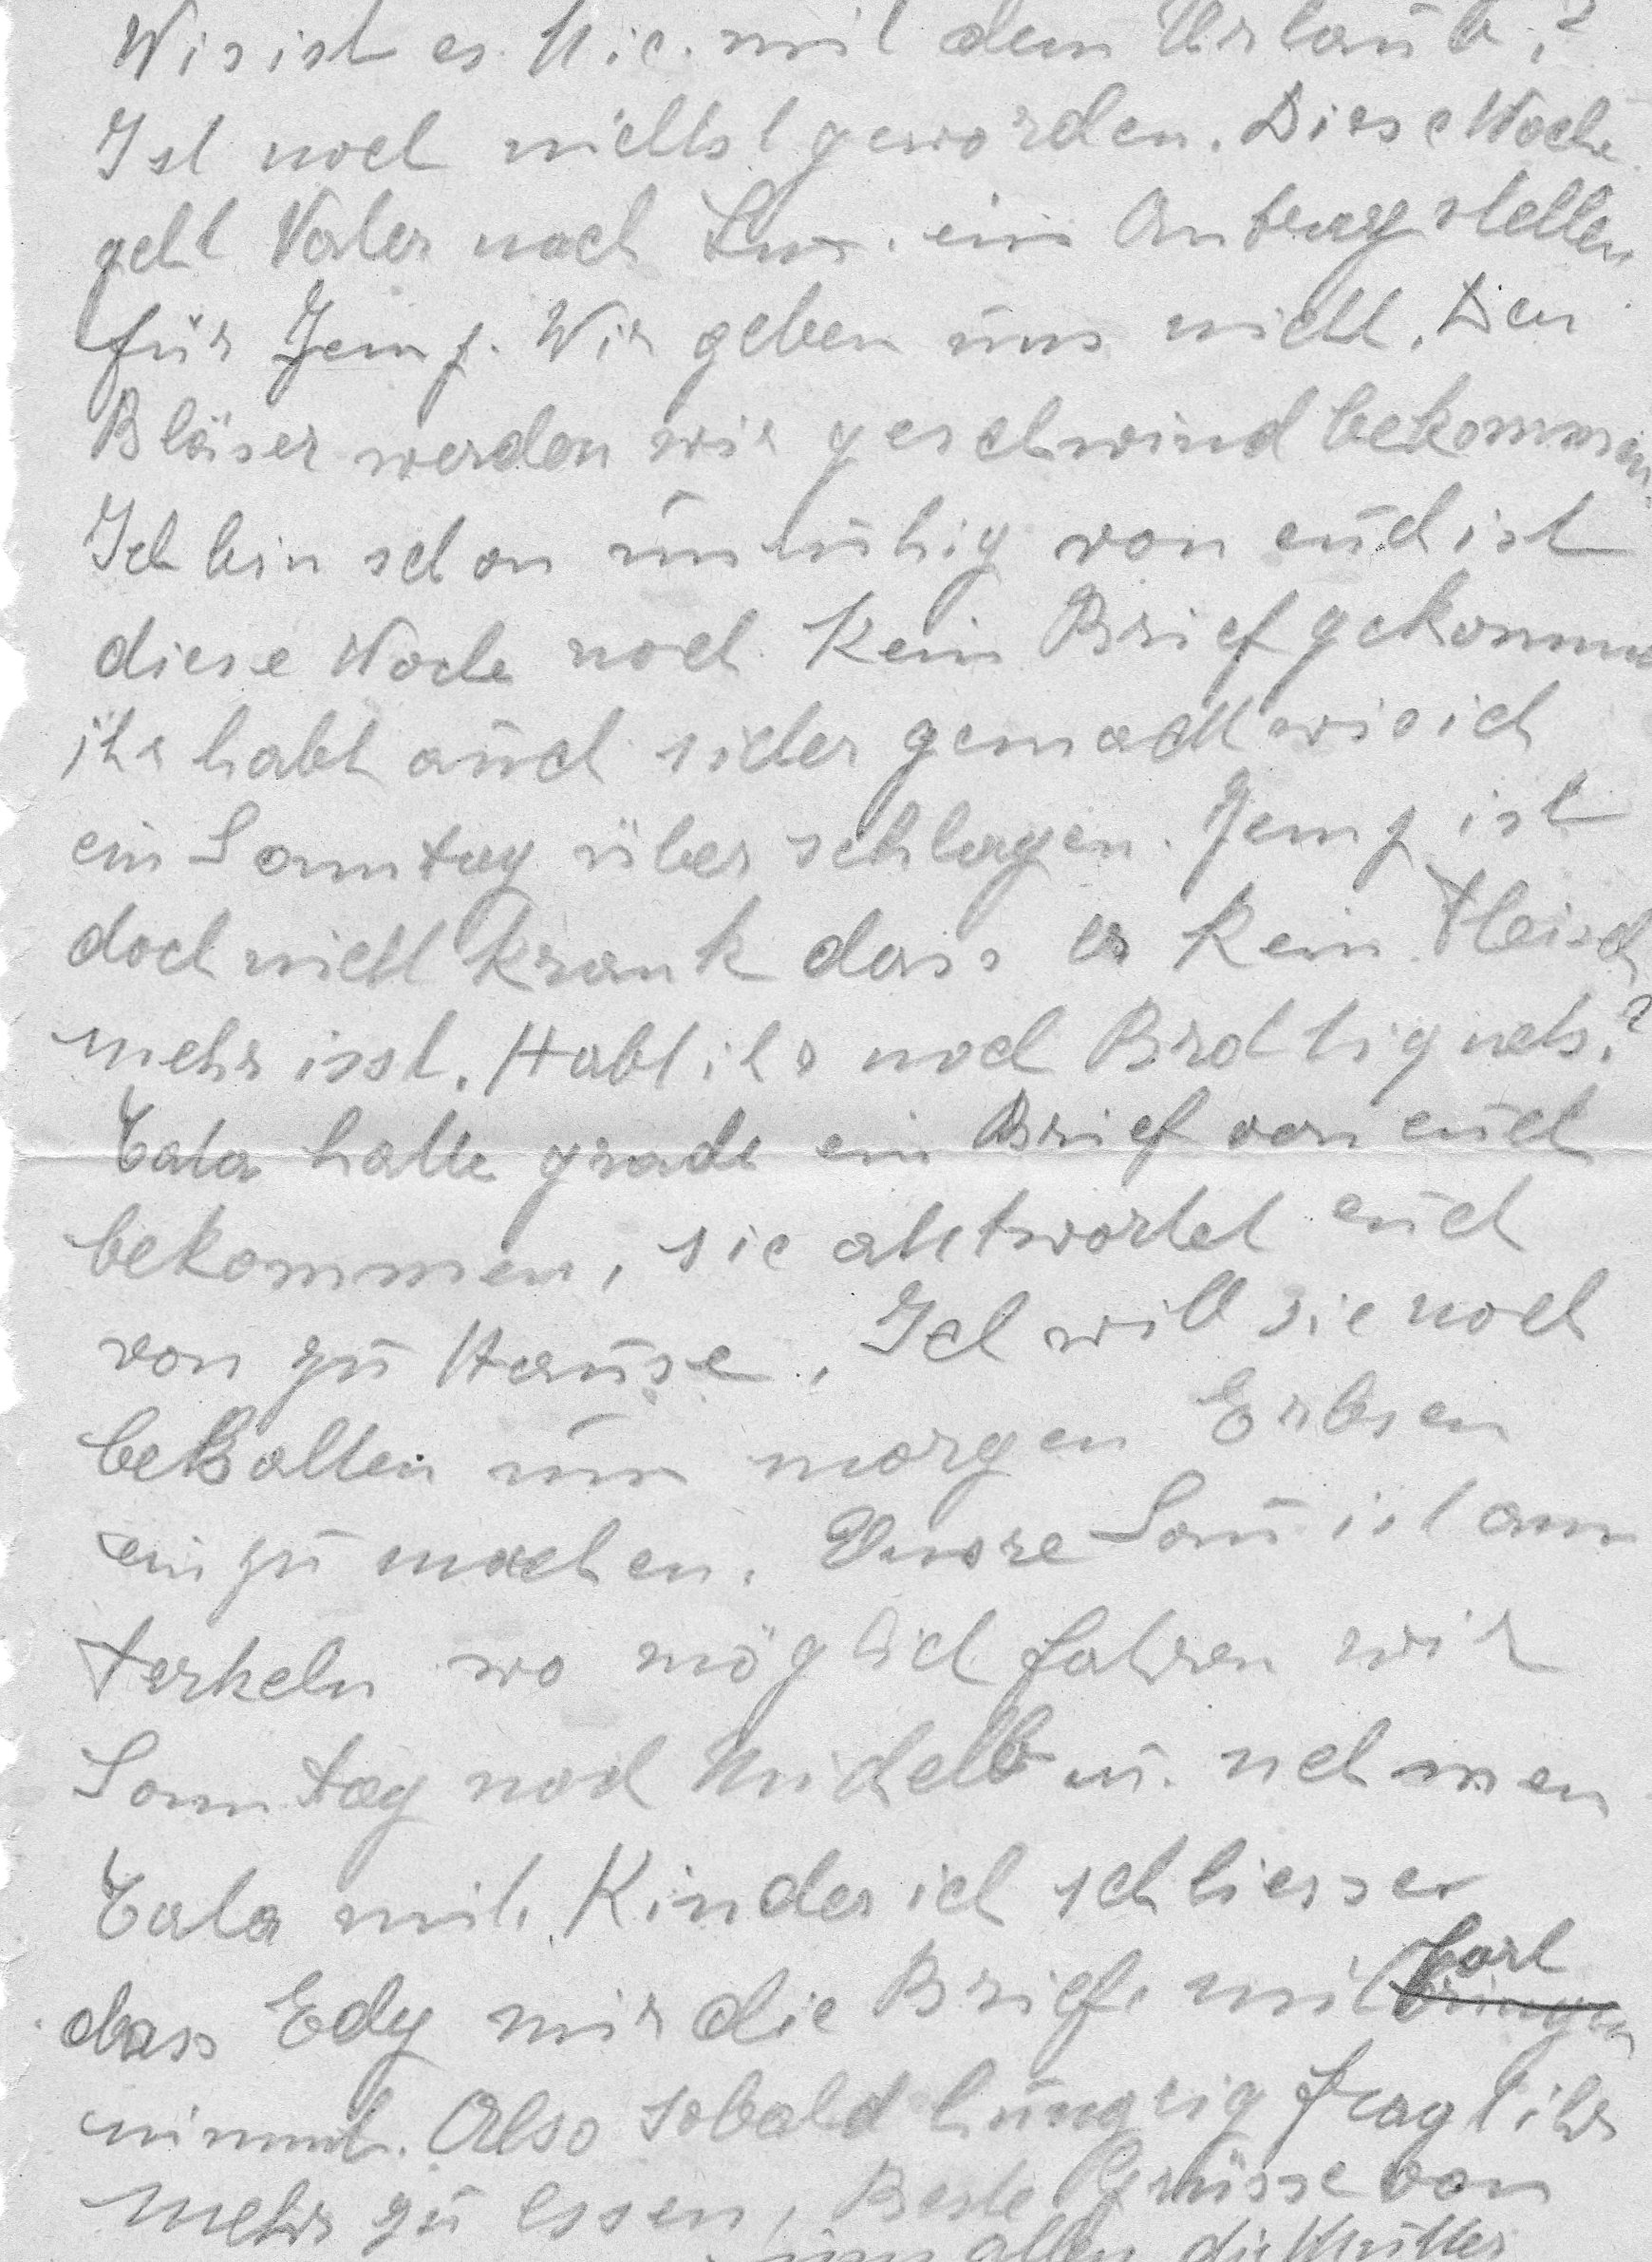 Wie ist es Nic. mit dem Urlaub?
Ist noch nichtst geworden. Diese Woche
geht Vater nach Lux. ein Antrag stellen
für Jemp. Wir geben uns nicht. Den
Bläser werden wir geschwind bekommen.
Ich bin schon unruhig von euch ist
diese Woche noch kein Brief gekommen
ihr habt auch sicher gemacht wie ich
ein Sonntag überschlagen. Jemp ist
doch nicht krank dass er kein Fleisch
mehr isst. Habt ihr noch Brottignets?
Cala hatte grade ein Brief von euch
bekommen, sie antwortet euch
von zu Hause. Ich will sie noch
behalten um morgen Erbsen
ein zu machen. Unsre Sau ist am
ferkeln wo möglich fahren wir
Sonntag nach u. nehmen
Cala mit. Kinder ich schliesse
dass Edy mir die Briefe mit
nimmt. Also sobald hungrig fragt ihr
mehr zu essen, Beste Grüsse von
uns allen die Mutter